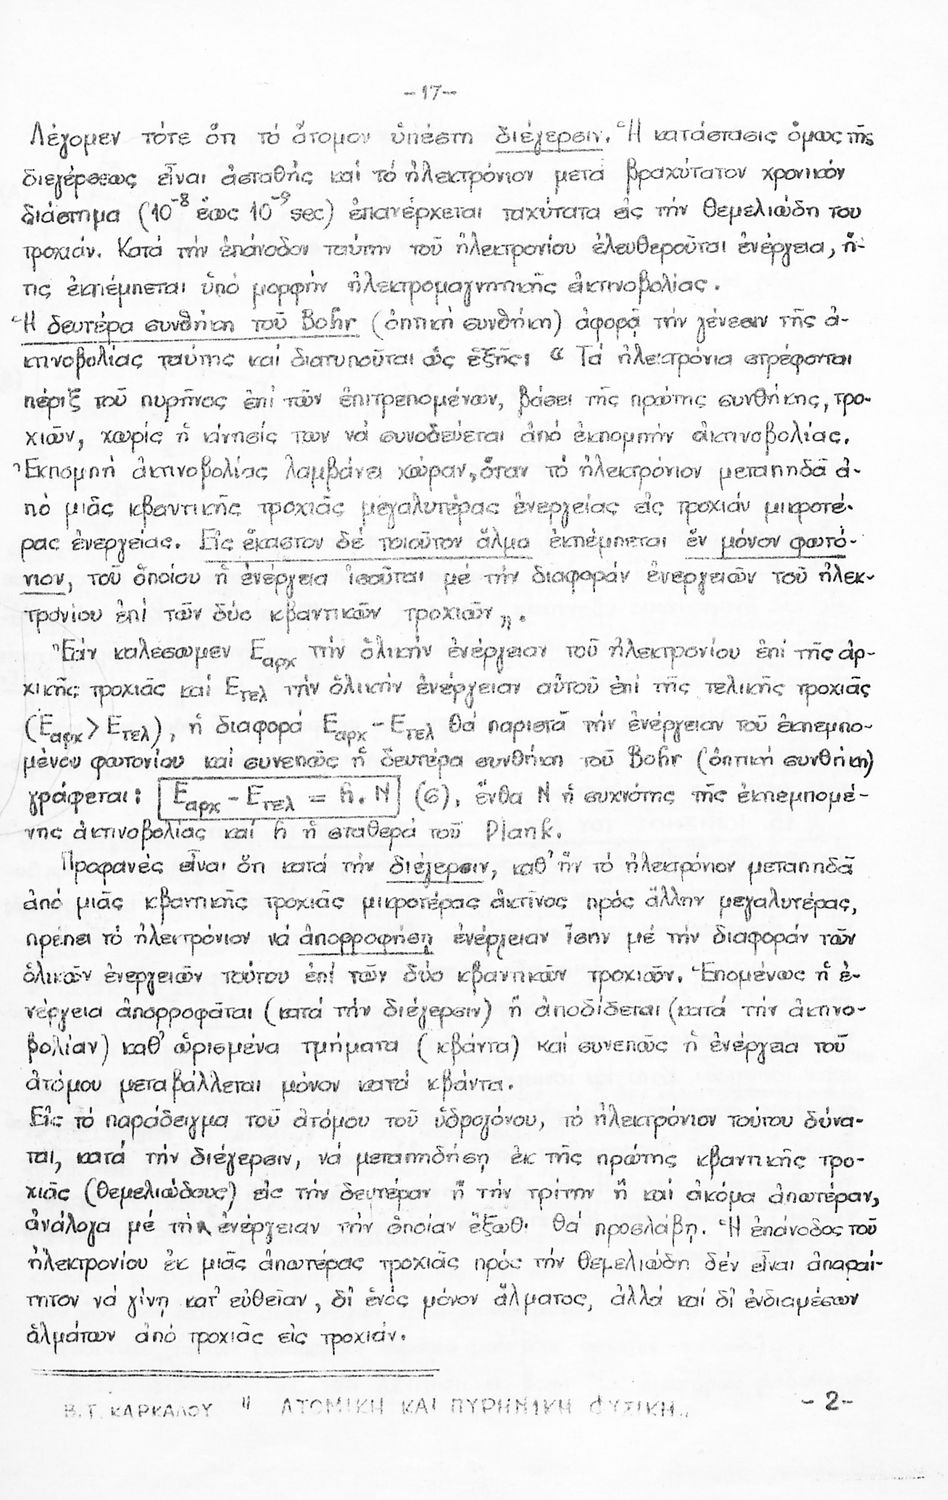 -17-
Λέγομεν τότε ὅτι τό ἄτομον ὑπέστη διέγερσιν. Ἡ κατάστασις ὅμως τῆς
διεγέρσεως εἶναι ἀσταθής καί τό ἠλεκτρόνιον μετά βραχύτατον χρονικόν
διάστημα (10⁻⁸ ἕως 10⁻⁹ sec) ἐπανέρχεται ταχύτατα εἰς τήν θεμελιώδη του
τροχιάν. Κατά τήν ἐπάνοδον ταύτην τοῦ ἠλεκτρονίου ἐλευθεροῦται ἐνέργεια, ἥ-
τις ἐκπέμπεται ὑπό μορφήν ἠλεκτρομαγνητικῆς ἀκτινοβολίας.
Ἡ δευτέρα συνθήκη τοῦ Bohr (ὀπτική συνθήκη) ἀφορᾷ τήν γένεσιν τῆς ἀ-
κτινοβολίας ταύτης καί διατυποῦται ὡς ἑξῆς: « Τά ἠλεκτρόνια στρέφονται
πέριξ τοῦ πυρῆνος ἐπί τῶν ἐπιτρεπομένων, βάσει τῆς πρώτης συνθήκης, τρο-
χιῶν, χωρίς ἡ κίνησίς των νά συνοδεύεται ἀπό ἐκπομπήν ἀκτινοβολίας.
Ἐκπομπή ἀκτινοβολίας λαμβάνει χώραν, ὅταν τό ἠλεκτρόνιον μεταπηδᾶ ἀ-
πό μιᾶς κβαντικῆς τροχιᾶς μεγαλυτέρας ἐνεργείας εἰς τροχιάν μικροτέ-
ρας ἐνεργείας. Εἰς ἕκαστον δέ τοιοῦτον ἅλμα ἐκπέμπεται ἕν μόνον φωτό-
νιον, τοῦ ὁποίου ἡ ἐνέργεια ἰσοῦται μέ τήν διαφοράν ἐνεργειῶν τοῦ ἠλεκ-
τρονίου ἐπί τῶν δύο κβαντικῶν τροχιῶν„.
Ἐάν καλέσωμεν Eαρχ τήν ὁλικήν ἐνέργειαν τοῦ ἠλεκτρονίου ἐπί τῆς ἀρ-
χικῆς τροχιᾶς καί Eτελ τήν ὁλικήν ἐνέργειαν αὐτοῦ ἐπί τῆς τελικῆς τροχιᾶς
(Eαρχ > Eτελ), ἡ διαφορά Eαρχ - Eτελ θά παριστᾶ τήν ἐνέργειαν τοῦ ἐκπεμπο-
μένου φωτονίου καί συνεπῶς ἡ δευτέρα συνθήκη τοῦ Bohr (ὀπτική συνθήκη)
γράφεται: Eαρχ - Eτελ = h.N (6), ἔνθα N ἡ συχνότης τῆς ἐκπεμπομέ-
νης ἀκτινοβολίας καί h ἡ σταθερά τοῦ Plank.
Προφανές εἶναι ὅτι κατά τήν διέγερσιν, καθ' ἥν τό ἠλεκτρόνιον μεταπηδᾶ
ἀπό μιᾶς κβαντικῆς τροχιᾶς μικροτέρας ἀκτῖνος πρός ἄλλην μεγαλυτέρας,
πρέπει τό ἠλεκτρόνιον νά ἀπορροφήσῃ ἐνέργειαν ἴσην μέ τήν διαφοράν τῶν
ὁλικῶν ἐνεργειῶν τούτου ἐπί τῶν δύο κβαντικῶν τροχιῶν. Ἑπομένως ἡ ἐ-
νέργεια ἀπορροφᾶται (κατά τήν διέγερσιν) ἤ ἀποδίδεται (κατά τήν ἀκτινο-
βολίαν) καθ' ὡρισμένα τμήματα (κβάντα) καί συνεπῶς ἡ ἐνέργεια τοῦ
ἀτόμου μεταβάλλεται μόνον κατά κβάντα.
Εἰς τό παράδειγμα τοῦ ἀτόμου τοῦ ὑδρογόνου, τό ἠλεκτρόνιον τούτου δύνα-
ται, κατά τήν διέγερσιν, νά μεταπηδήσῃ ἐκ τῆς πρώτης κβαντικῆς τρο-
χιᾶς (θεμελιώδους) εἰς τήν δευτέραν ἤ τήν τρίτην ἤ καί ἀκόμα ἀπωτέραν,
ἀνάλογα μέ τήν ἐνέργειαν τήν ὁποίαν ἔξωθεν θά προσλάβῃ. Ἡ ἐπάνοδος τοῦ
ἠλεκτρονίου ἐκ μιᾶς ἀπωτέρας τροχιᾶς πρός τήν θεμελιώδη δέν εἶναι ἀπαραί-
τητον νά γίνῃ κατ' εὐθεῖαν, δι' ἑνός μόνον ἅλματος, ἀλλά καί δι' ἐνδιαμέσων
ἁλμάτων ἀπό τροχιᾶς εἰς τροχιάν.
Β.Τ. ΚΑΡΚΑΛΟΥ " ΑΤΟΜΙΚΗ ΚΑΙ ΠΥΡΗΝΙΚΗ ΦΥΣΙΚΗ„ -2-